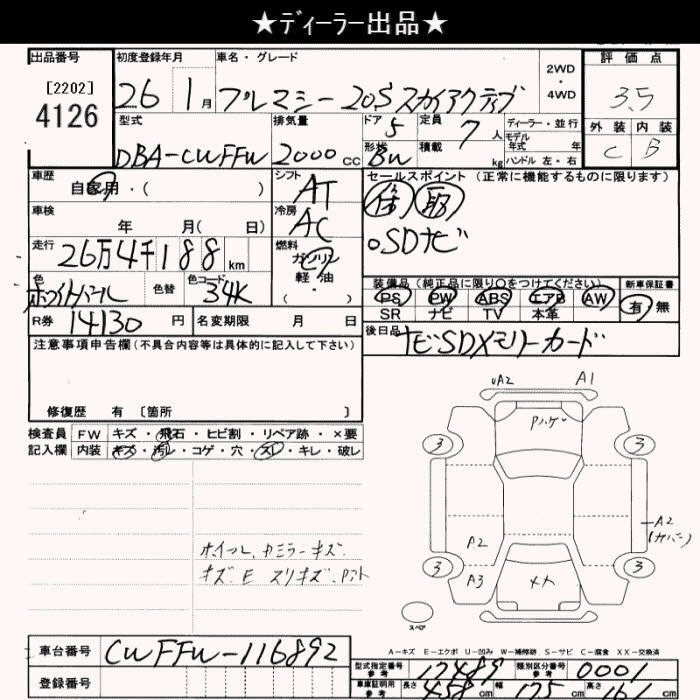 ★ディーラー出品★
出品番号 初度登録年月 車名・グレード 2WD・4WD 評価点
[2202] 4126 26 1月 プレマシー 20S スカイアクティブ 3.5
型式 排気量 ドア 5 定員 7人 ディーラー・並行 外装 内装
DBA-CWFFW 2000cc 形状 Bw 積載 kg モデル年式 年式 ハンドル 左・右 C B
車歴 自家用・( ) シフト AT セールスポイント (正常に機能するものに限ります)
車検 年 月( 日) 冷房 AC 保 取
走行 26万4千188km 燃料 ガソリン 軽・油 ( ) ○SDナビ
色 ホワイトパール 色替 色コード 34K 装備品 (純正品に限り○をつけてください) 新車保証書
PS PW ABS エアB AW 有 無
SR ナビ TV 本革
R券 14130円 名変期限 月 日 後日品 ナビSDメモリーカード
注意事項申告欄(不具合内容等は具体的に記入して下さい)
修復歴 有 〔箇所 〕
検査員 FW キズ・飛石・ヒビ割・リペア跡・×要
記入欄 内装 キズ・汚レ・コゲ・穴・スレ・キレ・破レ
ホイール、ドミラーキズ
キズ E スリキズ
UA2 A1
3 3
A2 A2
(カバー)
3 3
A3
スペア
A-キズ E-エクボ U-凹み W-補修跡 S-サビ C-腐食 XX-交換済
車台番号 CWFFW-116892
登録番号
型式指定番号 参考 17489 類別区分番号 参考 0001
車庫証明用 参考 長さ 458cm 幅 175cm 高さ 161cm